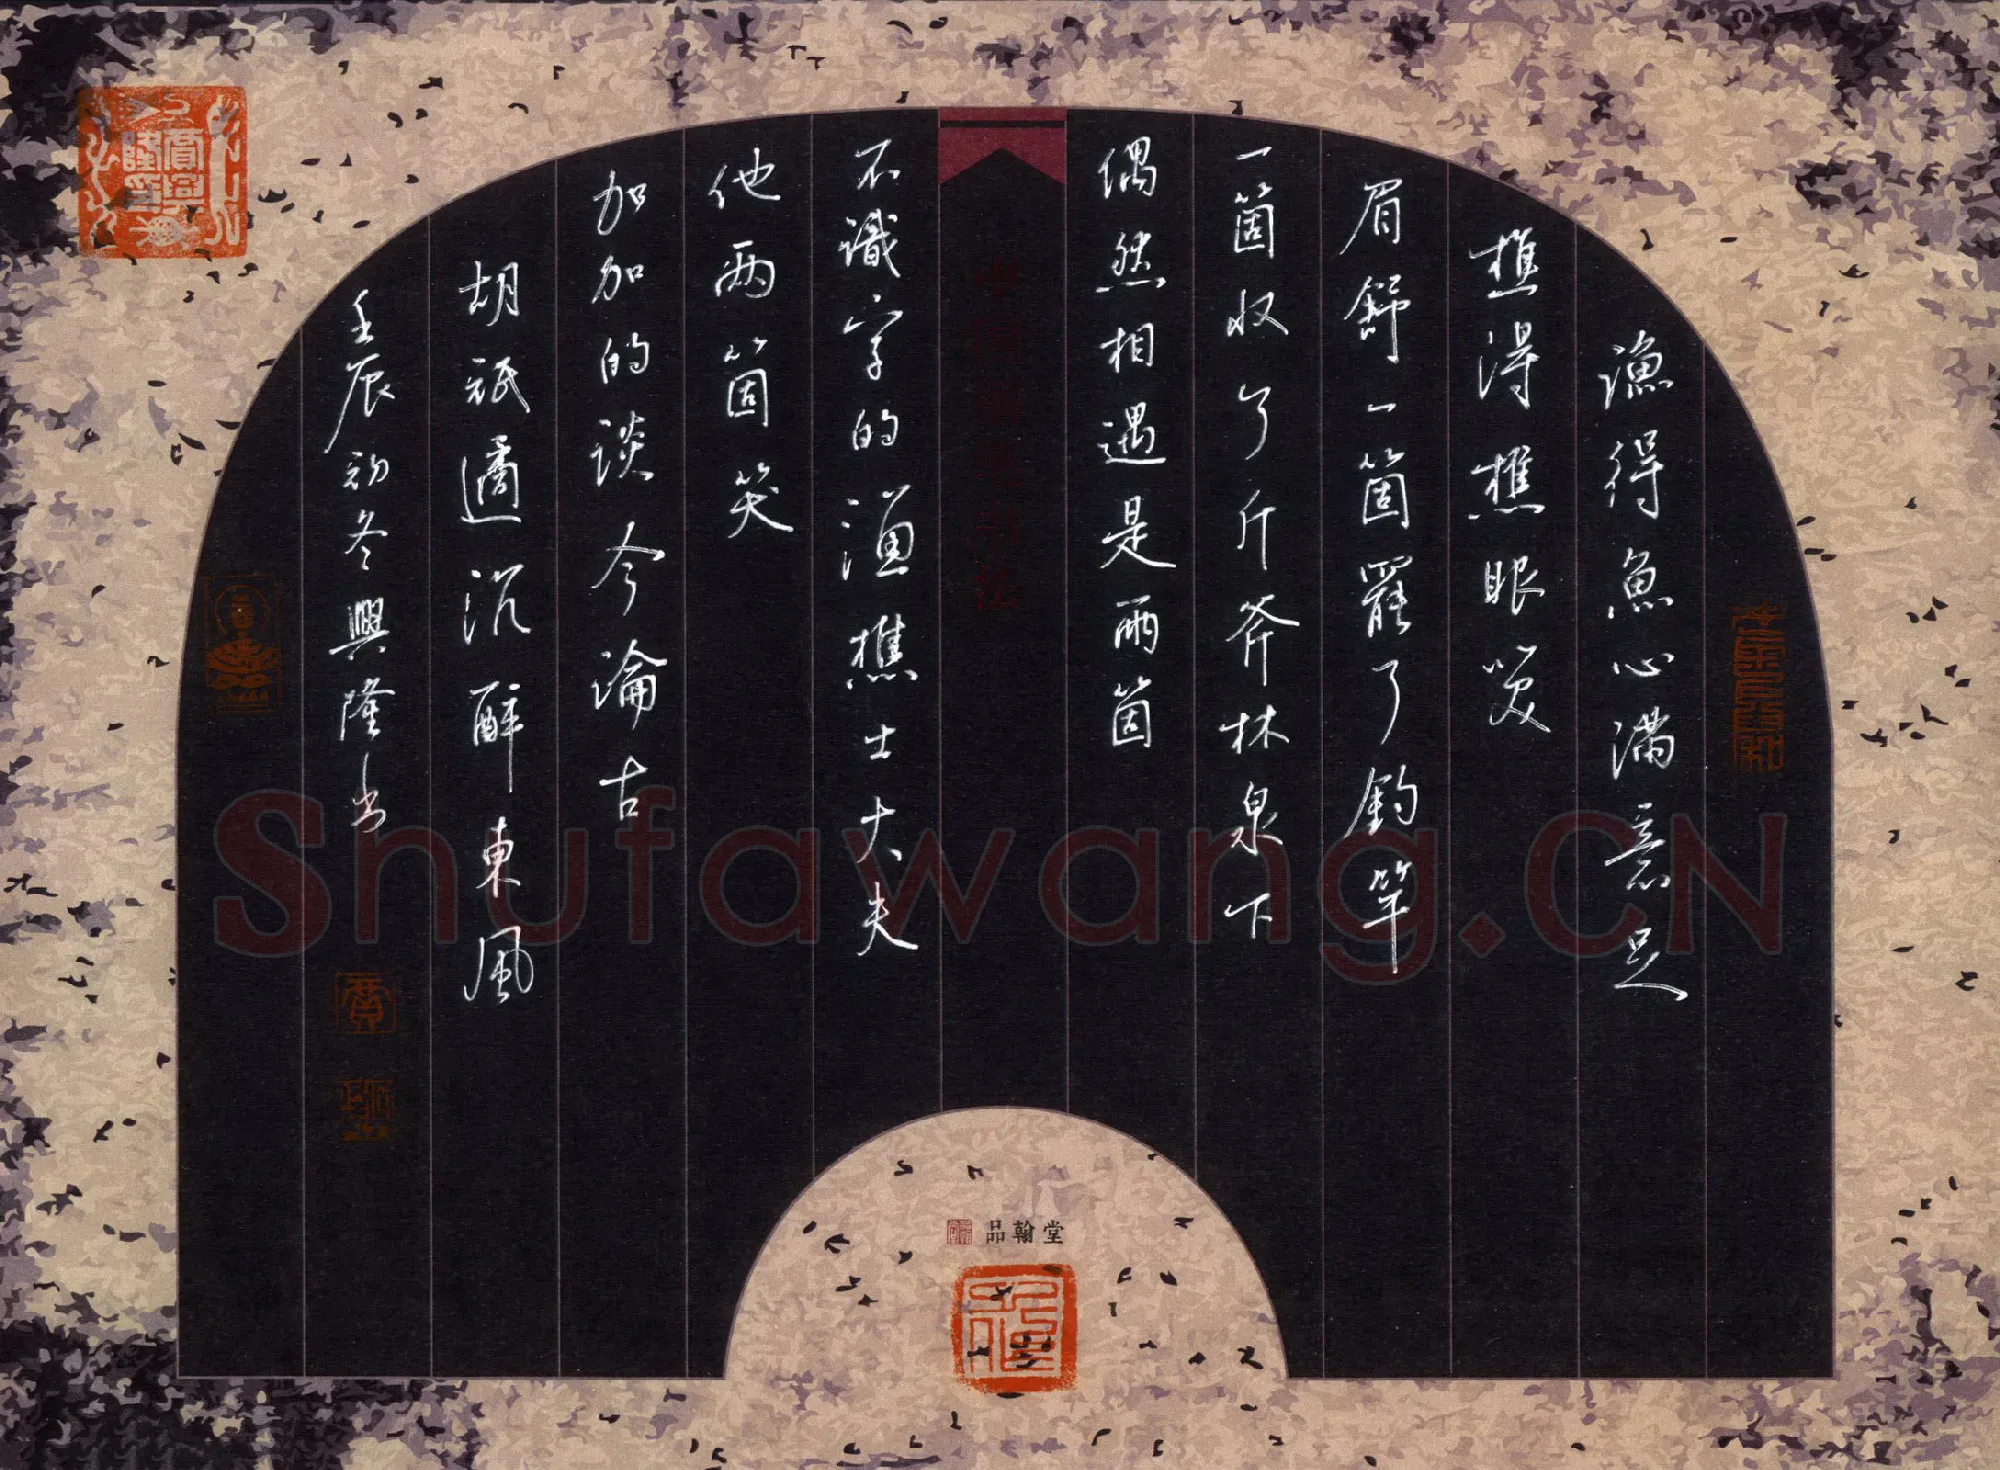 漁得魚心滿意足
樵得樵眼笑
眉舒一箇罷了釣竿
一箇收了斤斧林泉下
偶然相遇是兩箇
不識字的漁樵士大夫
他兩箇笑
加加的談今論古
胡祗遹沉醉東風
壬辰初冬興隆书
Shufawang.CN
品翰堂